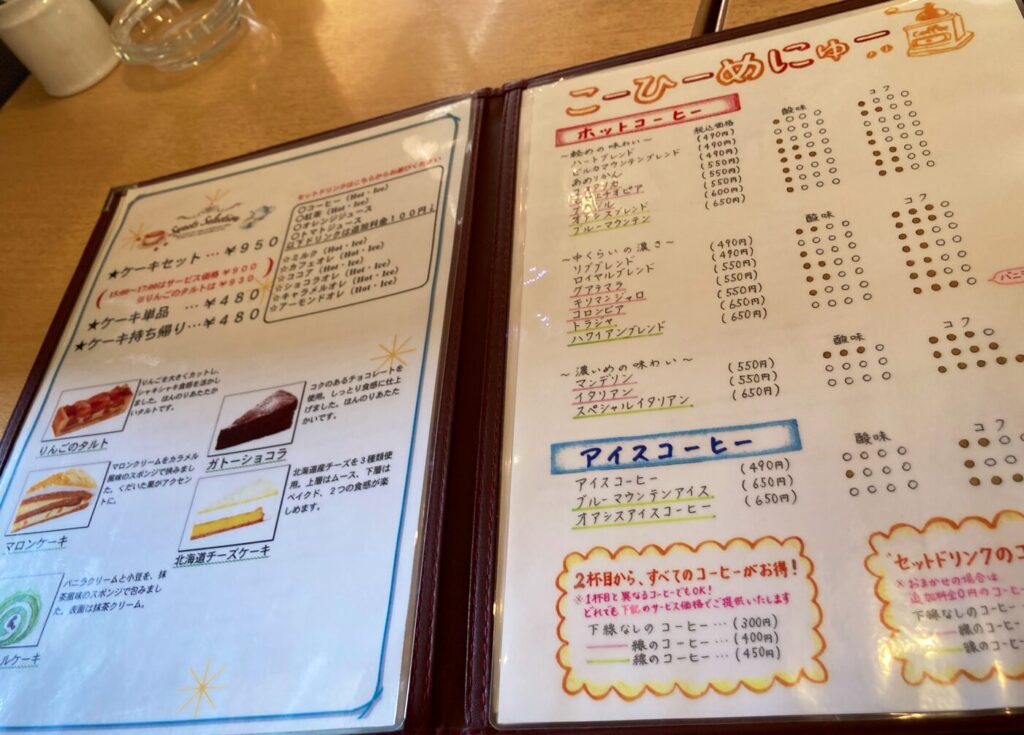 Sweets Selection
★ケーキセット…￥950
(15:00~17:00はサービス価格￥900
※りんごのタルトは￥930)
★ケーキ単品 …￥480
★ケーキ持ち帰り…￥480
セットドリンクはこちらからお選びください
○コーヒー (Hot・Ice)
○紅茶 (Hot・Ice)
○オレンジジュース
○トマトジュース
以下ドリンクは追加料金100円↓
☆ミルク (Hot・Ice)
☆カフェオレ (Hot・Ice)
☆ココア (Hot・Ice)
☆ショコラオレ (Hot・Ice)
☆キャラメルオレ (Hot・Ice)
☆アーモンドオレ (Hot・Ice)
りんごを大きくカットし、
シャキシャキ食感を活かし
ました。ほんのりあたたか
いタルトです。
りんごのタルト
コクのあるチョコレートを
使用。しっとり食感に仕上
げました。ほんのりあたた
かいです。
ガトーショコラ
マロンクリームをカラメル
風味のスポンジで挟みまし
た。くだいた栗がアクセン
トに。
マロンケーキ
北海道産チーズを3種類使
用。上層はムース、下層は
ベイクド、2つの食感が楽
しめます。
北海道チーズケーキ
バニラクリームと小豆を、抹
茶風味のスポンジで包みまし
た。表面は抹茶クリーム。
ルケーキ
こーひーめにゅー
ホットコーヒー
税込価格
酸味
コク
~軽めの味わい~
ハートブレンド (490円)
ビルカマウンテンブレンド (490円)
あめりかん (490円)
(550円)
(550円)
(550円)
オアシスブレンド (600円)
ブルーマウンテン (650円)
~中くらいの濃さ~
酸味
コク
リブブレンド (490円)
ロイヤルブレンド (490円)
グアテマラ (550円)
キリマンジャロ (550円)
コロンビア (550円)
トラジャ (650円)
ハワイアンブレンド (650円)
バニ
~濃いめの味わい~
酸味
コク
マンデリン (550円)
イタリアン (550円)
スペシャルイタリアン (650円)
アイスコーヒー
酸味
コク
アイスコーヒー (490円)
ブルーマウンテンアイス (650円)
オアシスアイスコーヒー (650円)
2杯目から、すべてのコーヒーがお得!
※1杯目と異なるコーヒーでもOK!
どれでも下記のサービス価格でご提供いたします
下線なしのコーヒー…(300円)
線のコーヒー…(400円)
線のコーヒー…(450円)
セットドリンクのコ
※おまかせの場合は
追加料金0円のコーヒー
下線なしのコーヒー
線のコーヒ
線のコーヒ